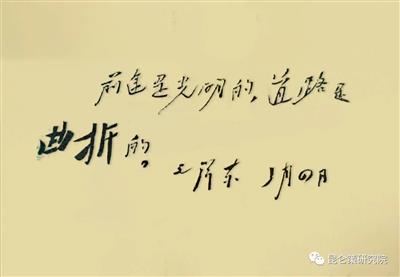 前途是光明的，道路是
曲折的。
毛泽东 一月四日
昆仑策研究院